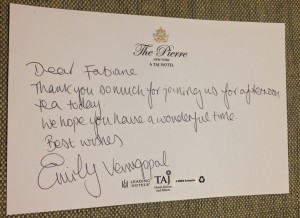 The Pierre
NEW YORK
A TAJ HOTEL
Dear Fabiane
Thank you so much for joining us for afternoon
tea today
We hope you have a wonderful time.
Best wishes
Emily Venugopal
LEADING HOTELS
TAJ
Hotels Resorts
and Palaces